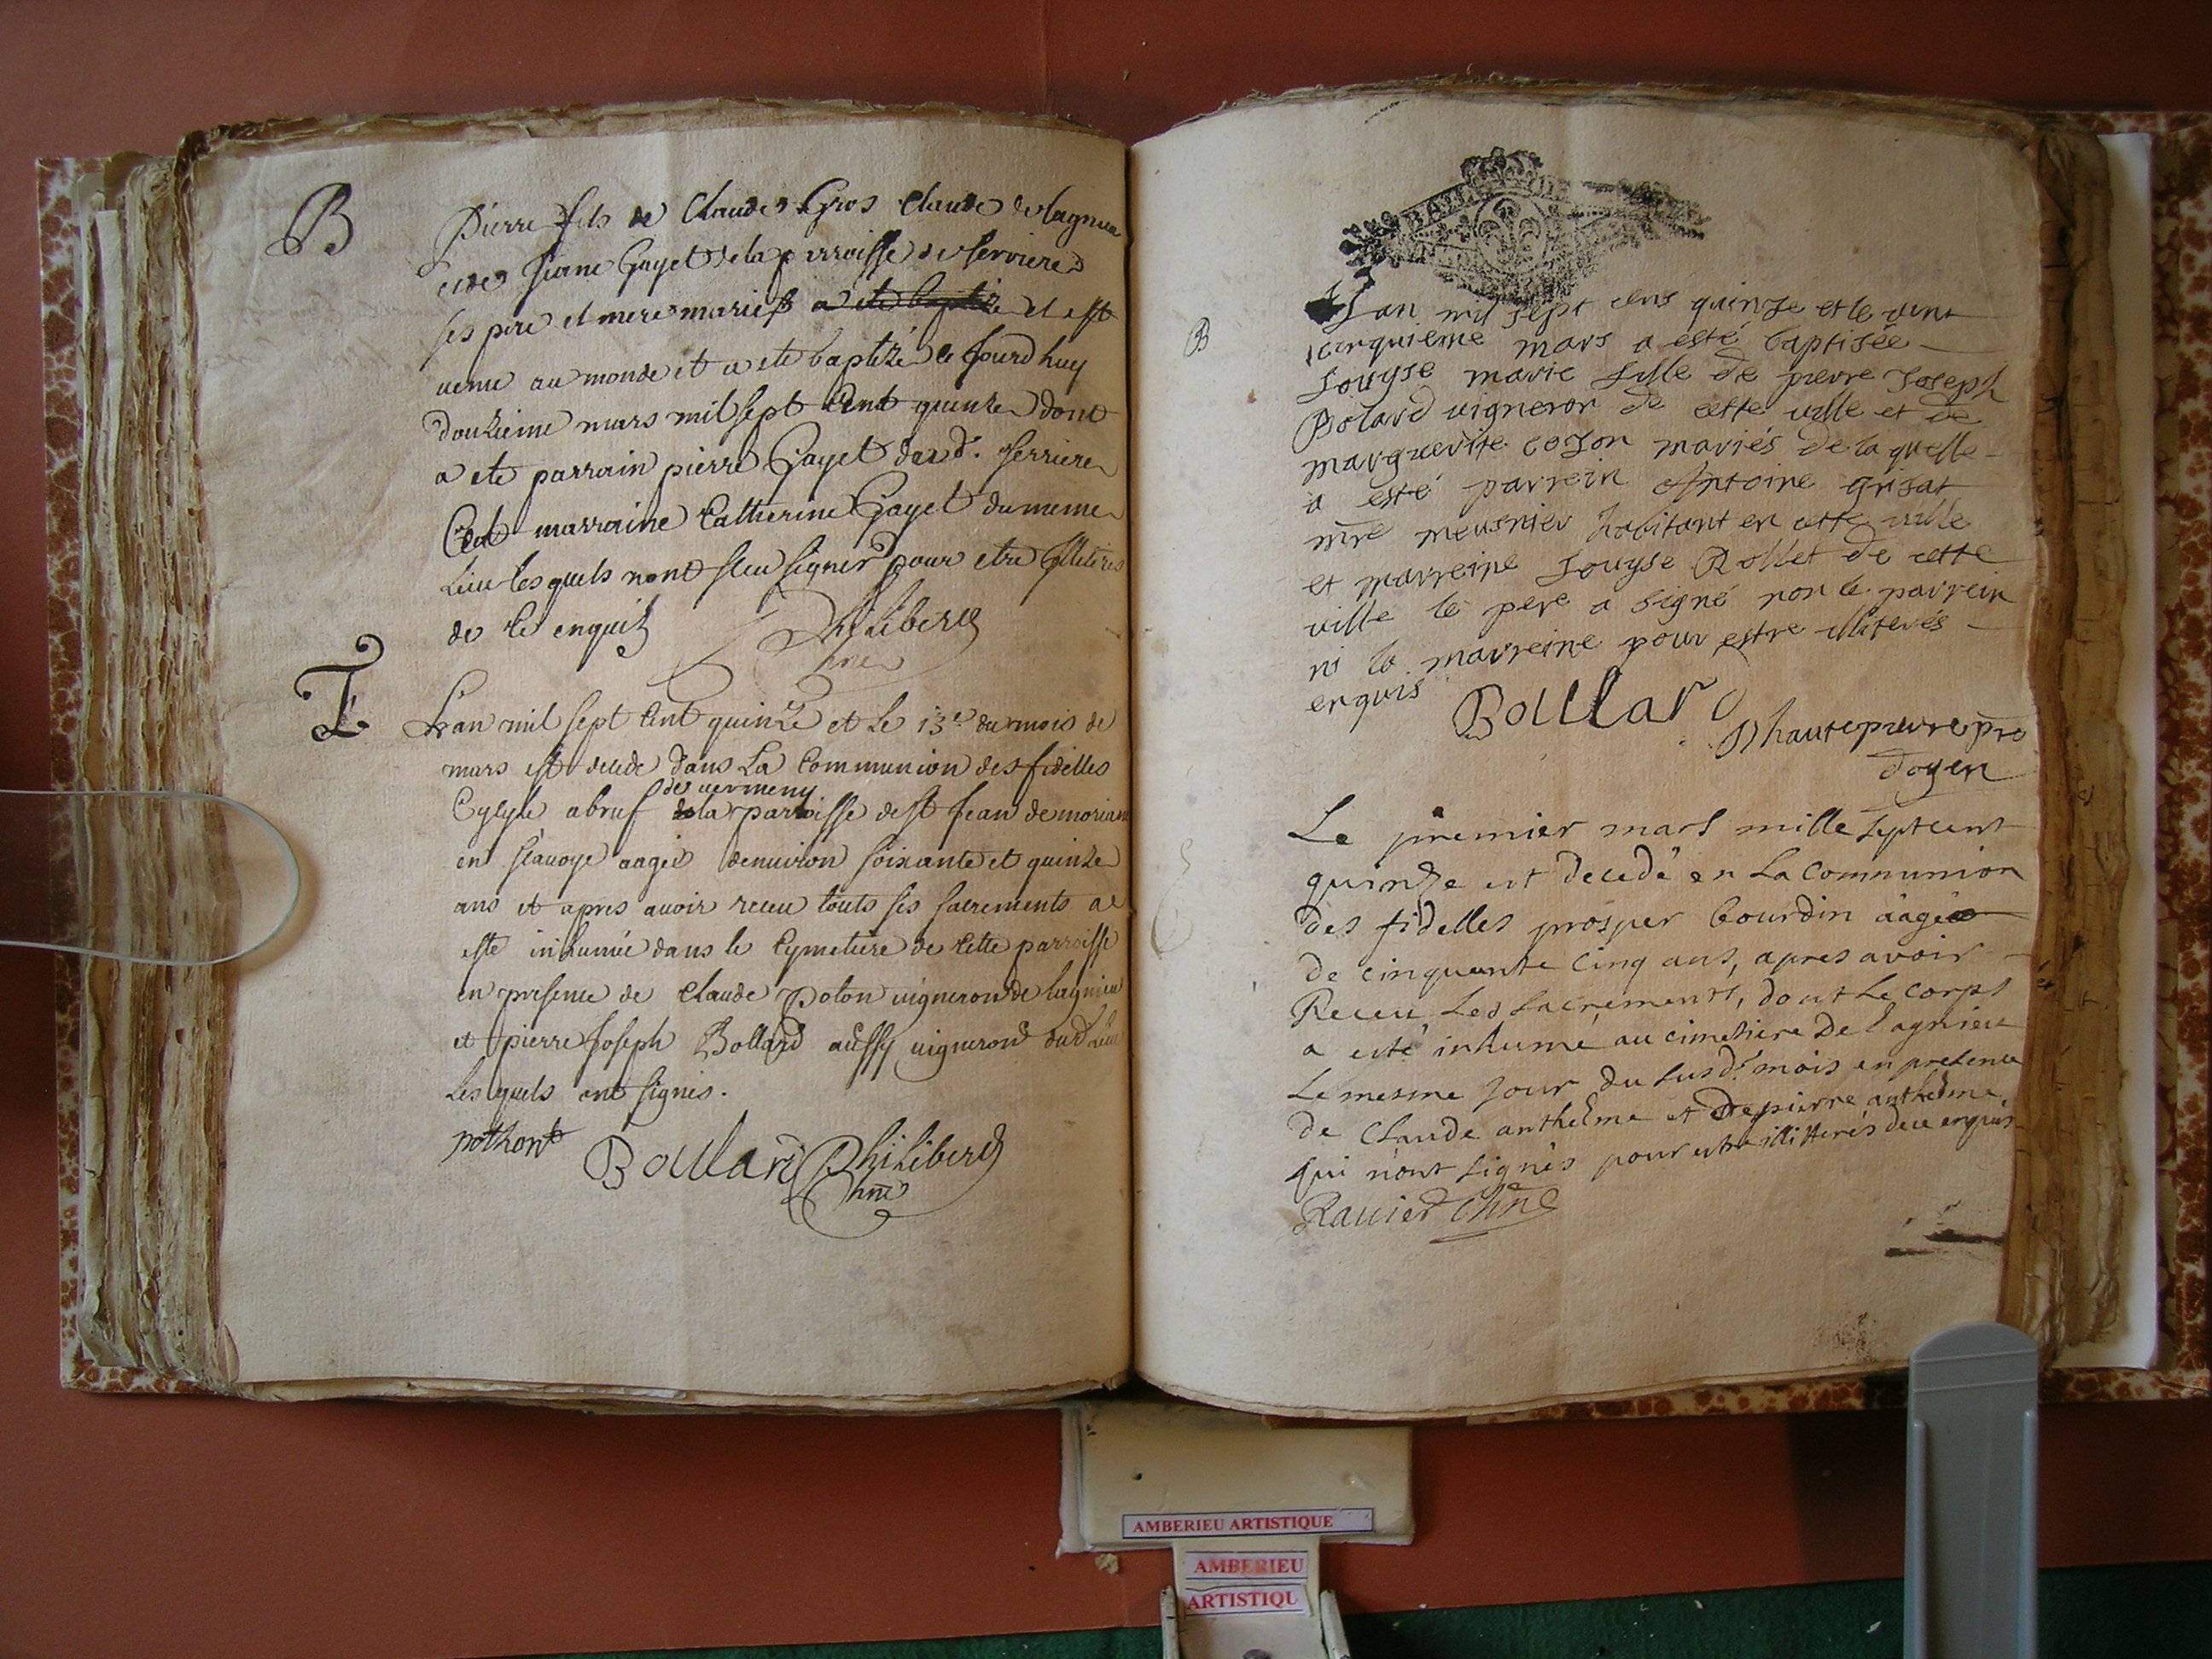 B
Pierre fils de Claude Gros Claude de lagnieu
et de Jeane Gayet de la parroisse de serrieres
ses pere et mere mariés a ete baptizé et est
venu au monde et a ete baptizé ce jourdhuy
douzieme mars mil sept cent quinze dont
a ete parrain pierre Gayet dud. serriere
et marraine Catherine Gayet du meme
Lieu lesquels nont sceu signer pour etre illiterés
de ce enquis
Philiberd
T
L'an mil sept cent quinze et le 13e du mois de
mars est decedé dans La Communion des fidelles
de vermeny
de la parroisse de st Jean de
en savoye aagé denviron soixante et quinze
ans et apres avoir receu touts ses sacrements a
esté inhumé dans le Cymetiere de cette parroisse
en presence de Claude Poton vigneron de lagnieu
et pierre Joseph Bollard aussy vigneron dud Lieu
Lesquels ont signés.
pothont Boullard Philiberd
B
L'an mil sept cens quinze et le vint
cinquieme mars a esté baptisée
Louyse marie fille de pierre Joseph
Bolard vigneron de cette ville et de
marguerite cozon mariés de laquelle
a esté parrein Antoine grisat
mre meusnier habitant en cette ville
et marreine Louyse Rollet de cette
ville le pere a signé non le parrein
ni la marreine pour estre illiterés
enquis
Boullard
Dhautepierre pre
doyen
Le premier mars mille septcent
quinze est decedé en La Communion
des fidelles prosper bourdin aagé
de cinquante cinq ans, apres avoir
Receu Les sacrements, dont Le corps
a esté inhumé au cimetiere De Lagnieu
Le mesme jour du susd. mois en presence
de Claude anthelme et De pierre anthelme
qui n'ont signés pour estre illitterés de ce enquis
Ravier
AMBERIEU ARTISTIQUE
AMBERIEU
ARTISTIQU